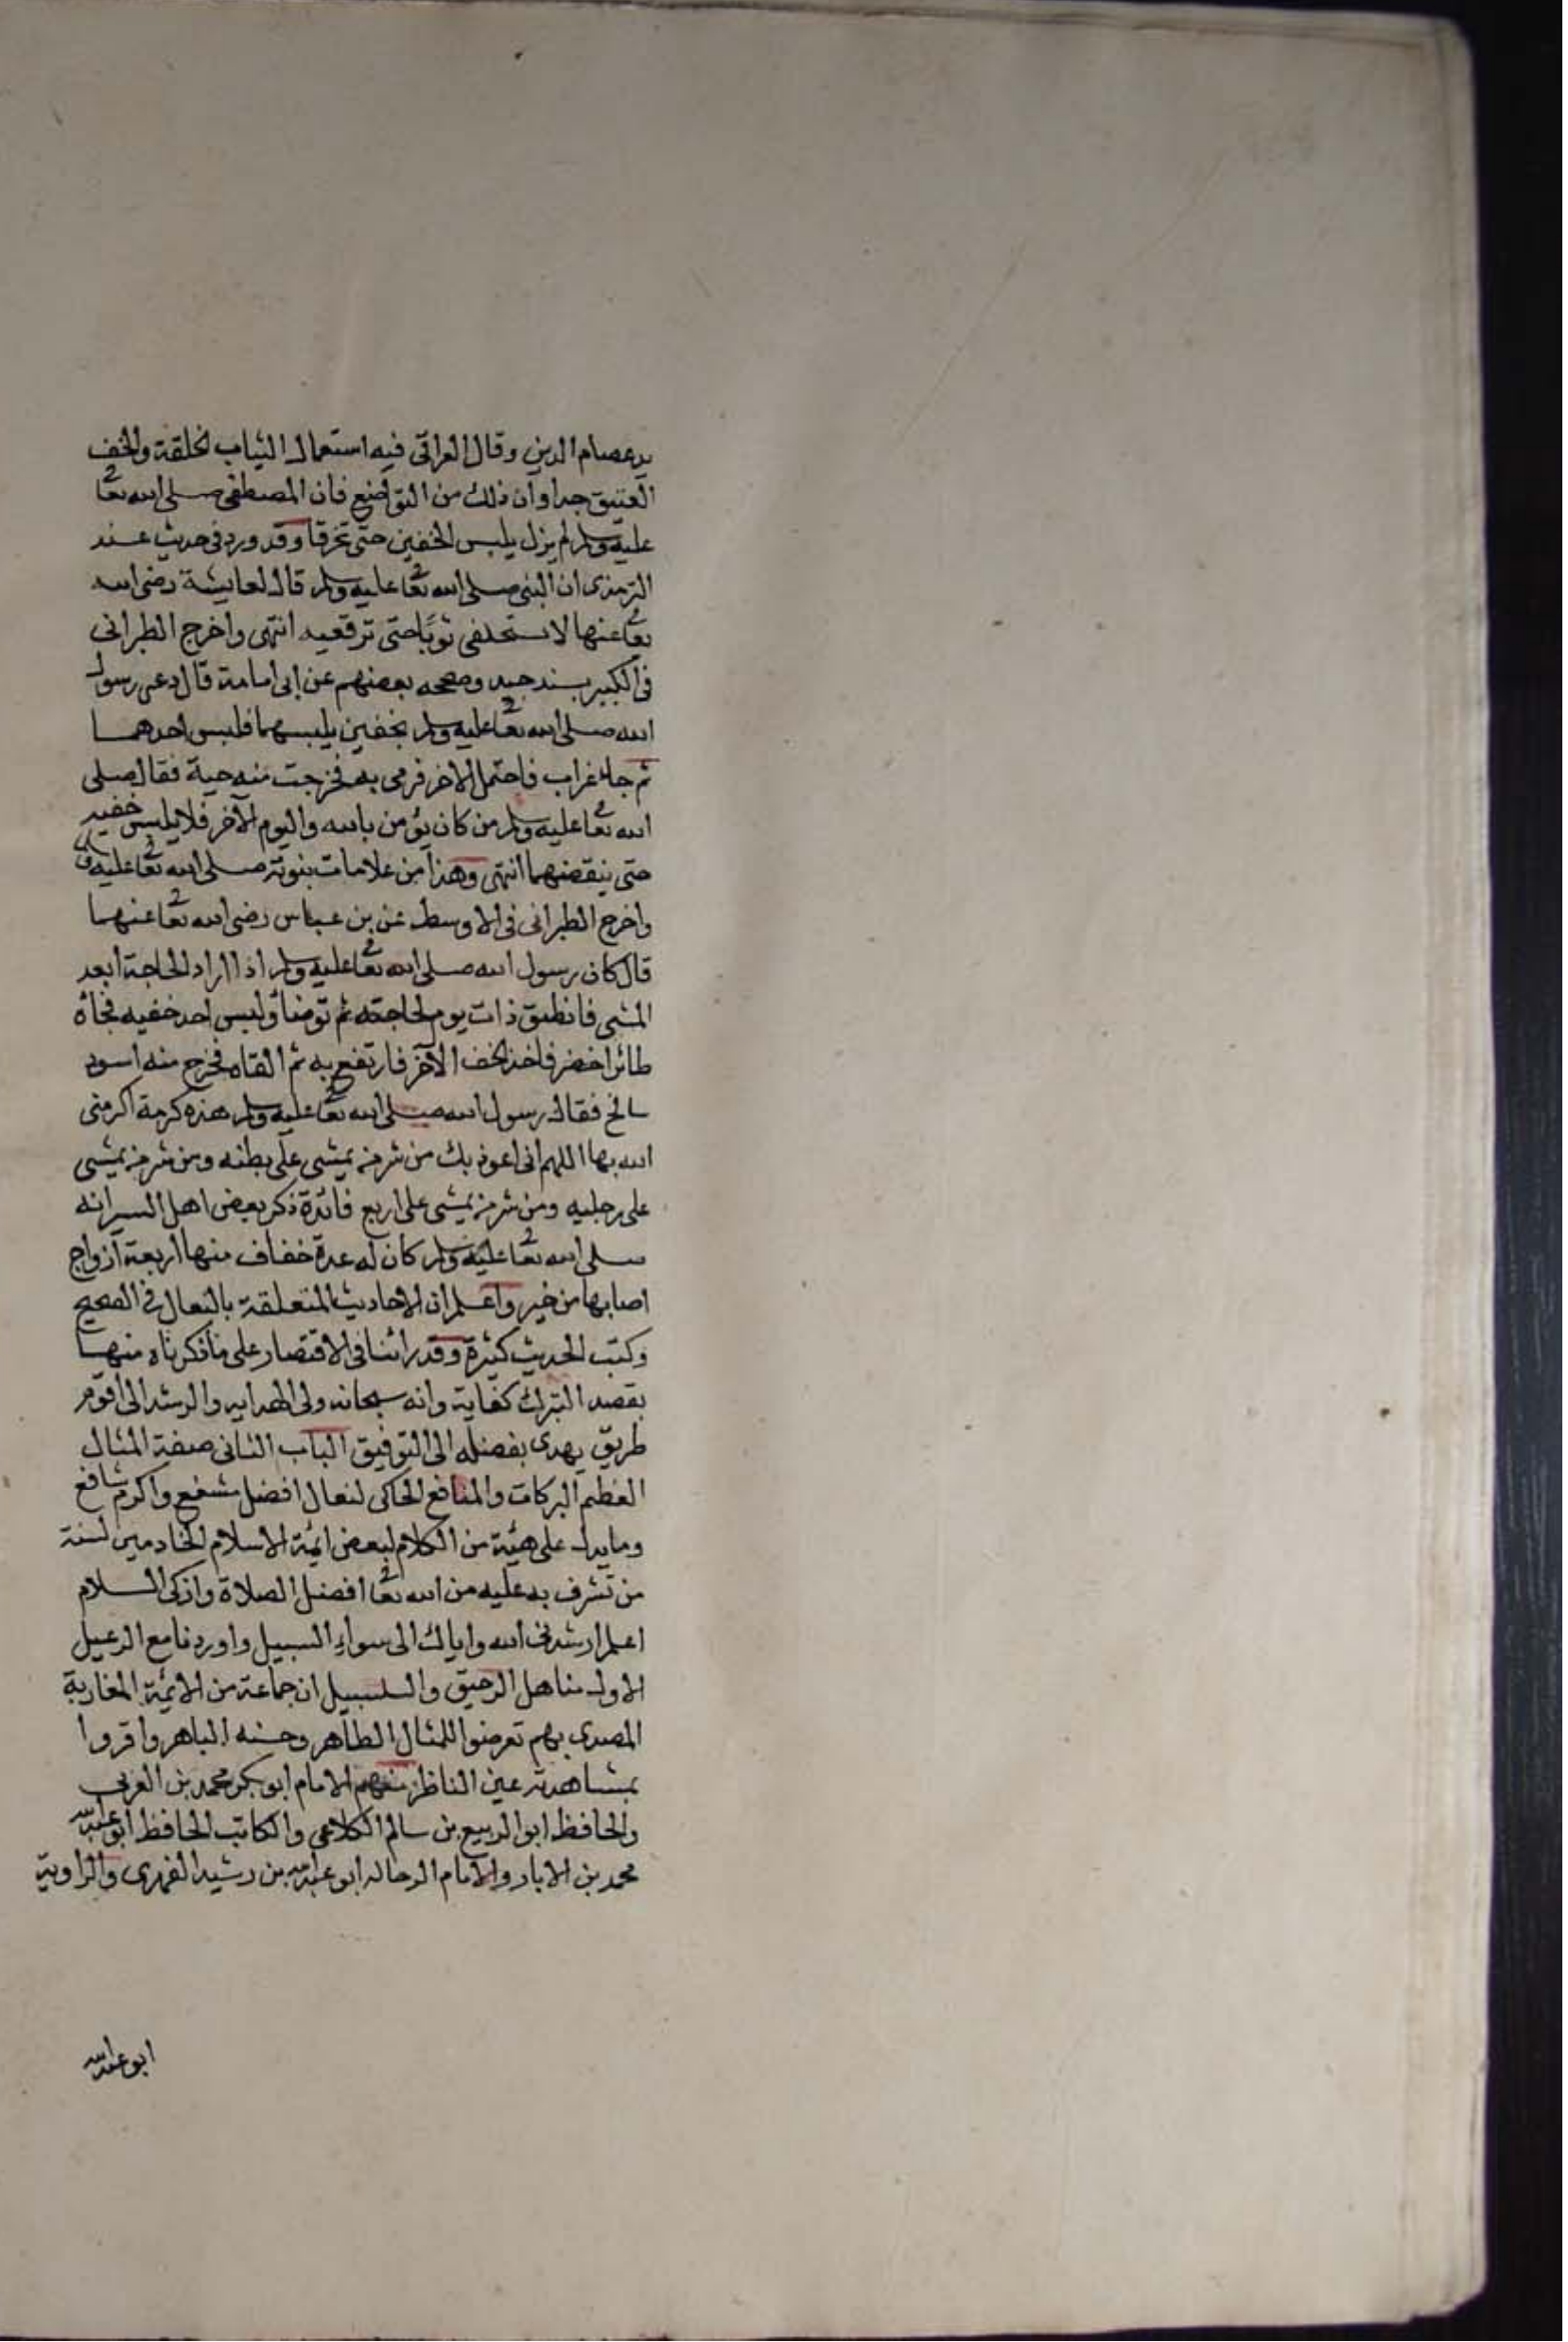 يد عصام الدين وقال العراقى فيه استعمال الثياب الخلقة والخف
العتيق جدا وان ذلك من التواضع فان المصطفى صلى الله تعا
عليه وسلم لم يزل يلبس الخفين حتى تخرقا وقد ورد فى حديث عند
الترمذى ان النبى صلى الله تعا عليه وسلم قال لعايشة رضى الله
تعا عنها لا تستخلفى ثوبًا حتى ترقعيه انتهى واخرج الطبرانى
فى الكبير بسند جيد وصححه بعضهم عن ابى امامة قال دعى رسول
الله صلى الله تعا عليه وسلم بخفين يلبسهما فلبس احدهما
ثم جاء غراب فاحتمل الاخر فرمى به فخرجت منه حية فقال صلى
الله تعا عليه وسلم من كان يؤمن بالله واليوم الآخر فلا يلبس خفيه
حتى ينفضهما انتهى وهذا من علامات نبوته صلى الله تعا عليه وسلم
واخرج الطبرانى فى الاوسط عن بن عباس رضى الله تعا عنهما
قال كان رسول الله صلى الله تعا عليه وسلم اذا اراد الحاجة ابعد
المشى فانطلق ذات يوم لحاجته ثم توضأ ولبس احد خفيه فجأه
طائر اخضر فاخذ الخف الآخر فارتفع به ثم القاه فخرج منه اسود
سالخ فقال رسول الله صلى الله تعا عليه وسلم هذه كرمة اكرمنى
الله بها اللهم انى اعوذ بك من شر من يمشى على بطنه ومن شر من يمشى
على رجليه ومن شر من يمشى على اربع فائدة ذكر بعض اهل السير انه
صلى الله تعا عليه وسلم كان له عدة خفاف منها اربعة ازواج
اصابها من خيبر واعلم ان الاحاديث المتعلقة بالنعال فى الصحيح
وكتب الحديث كثيرة وقد رائنا فى الاقتصار على ما ذكرناه منها
بقصد التبرك كفاية وانه سبحانه ولى الهدايه والرشد الى اقوم
طريق يهدى بفضله الى التوفيق الباب الثانى صفة المثال
العظيم البركات والمنافع الحاكى لنعال افضل مشفع واكرم شافع
وما يدل على هيئة من الكلام لبعض ائمة الاسلام الخادمين لسنة
من تشرف به عليه من الله تعا افضل الصلاة وازكى السلام
اعلم ارشدنى الله واياك الى سواء السبيل واوردنا مع الرعيل
الاول مناهل الرحيق والسلسبيل ان جماعة من الائمة المغاربة
المصدى بهم تعرضوا للمثال الطاهر وحسنه الباهر واقروا
بمشاهدته عين الناظر منهم الامام ابو بكر محمد بن العربى
والحافظ ابو الربيع بن سالم الكلاعى والكاتب الحافظ ابو عبد الله
محمد بن الابار والامام الرحاله ابو عبد الله بن رشيد الفهرى والراوية
ابو عبد الله